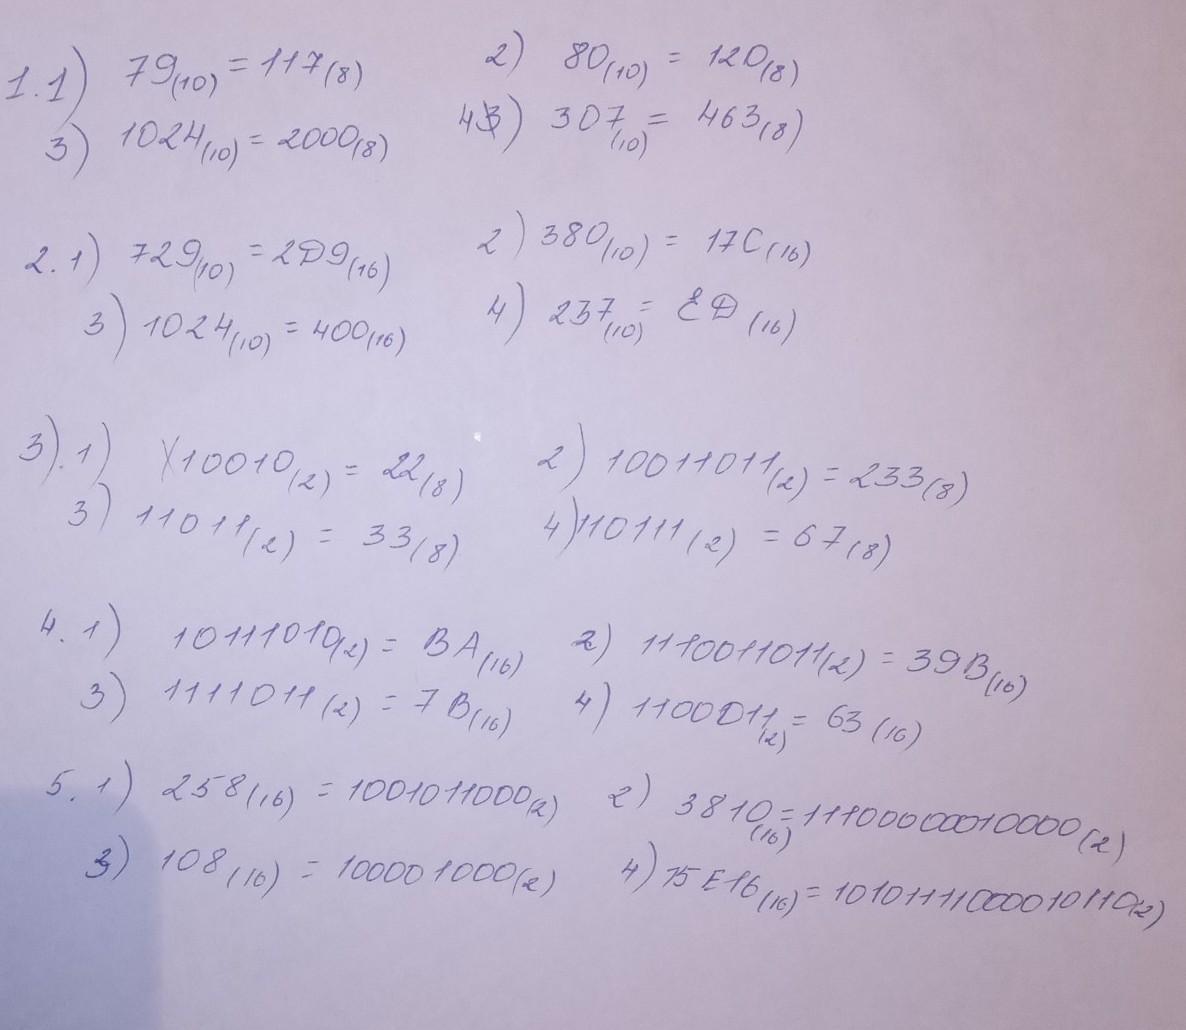 1.1) 79(10) = 117(8) 2) 80(10) = 120(8)
3) 1024(10) = 2000(8) 4) 307(10) = 463(8)
2.1) 729(10) = 2D9(16) 2) 380(10) = 17C(16)
3) 1024(10) = 400(16) 4) 237(10) = ED(16)
3).1) 10010(2) = 22(8) 2) 10011011(2) = 233(8)
3) 11011(2) = 33(8) 4) 110111(2) = 67(8)
4.1) 10111010(2) = BA(16) 2) 1110011011(2) = 39B(16)
3) 1111011(2) = 7B(16) 4) 1100011(2) = 63(16)
5.1) 258(16) = 1001011000(2) 2) 3810(16) = 11100000010000(2)
3) 108(16) = 100001000(2) 4) 15E16(16) = 10101111000010110(2)